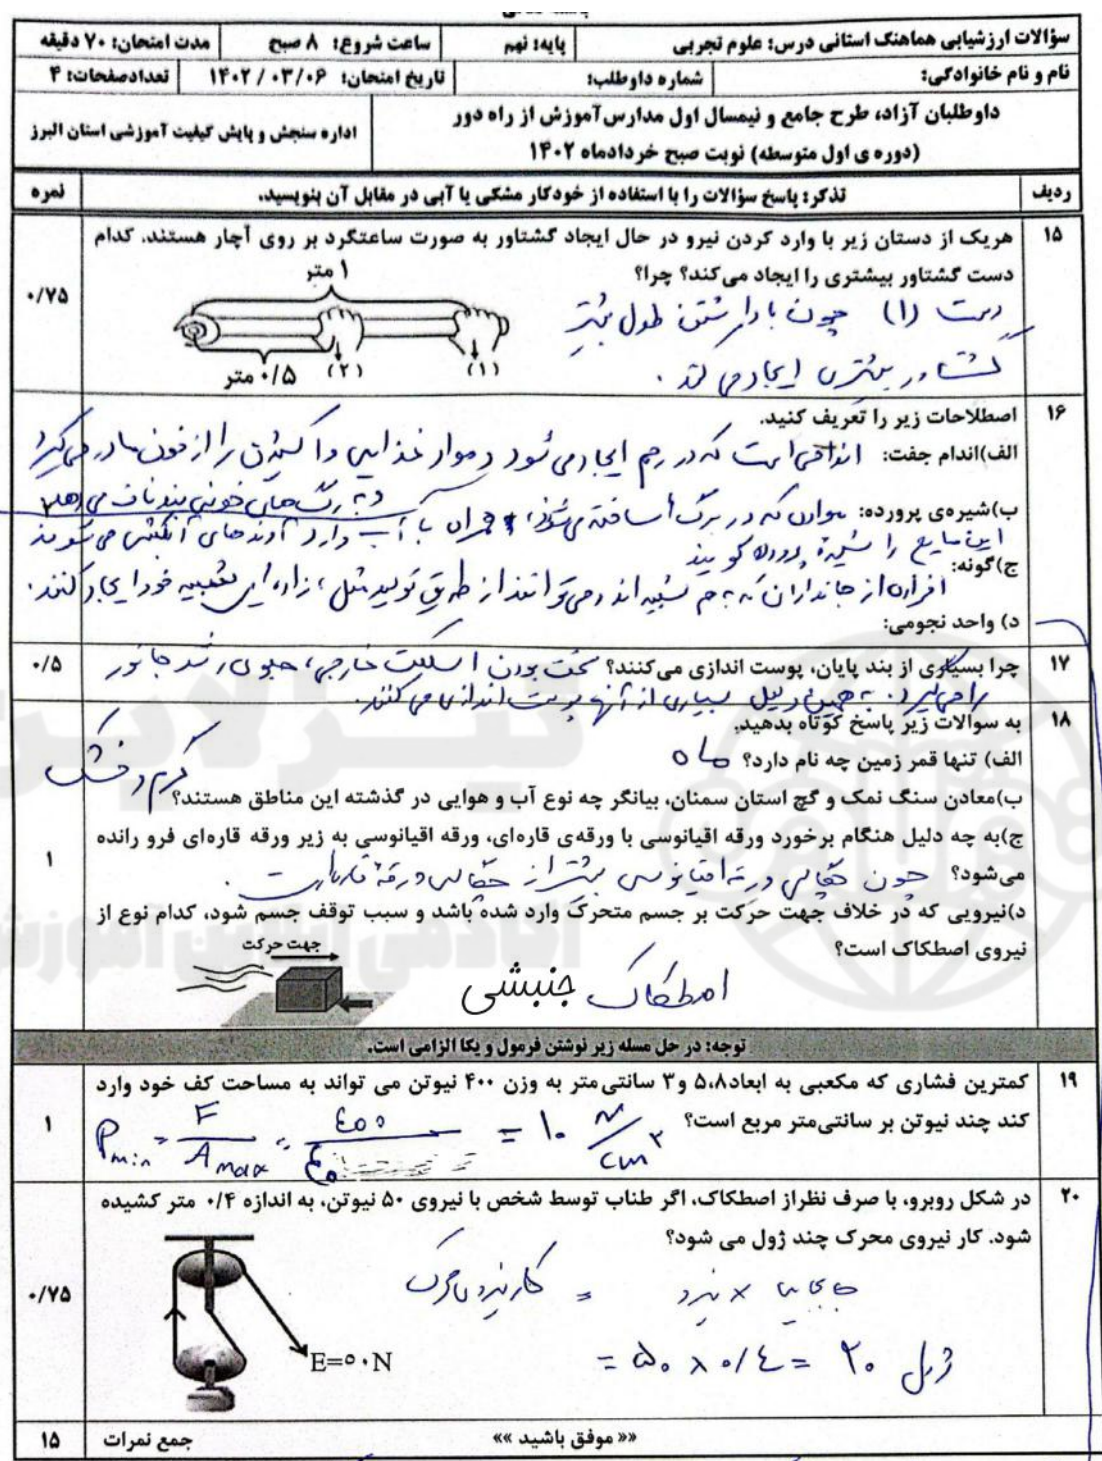 سؤالات ارزشیابی هماهنگ استانی درس: علوم تجربی
پایه: نهم
ساعت شروع: ۸ صبح
مدت امتحان: ۷۰ دقیقه
نام و نام خانوادگی:
شماره داوطلب:
تاریخ امتحان: ۱۴۰۲ / ۰۳/۰۶
تعدادصفحات: ۴
داوطلبان آزاد، طرح جامع و نیمسال اول مدارس آموزش از راه دور
(دوره ی اول متوسطه) نوبت صبح خردادماه ۱۴۰۲
اداره سنجش و پایش کیفیت آموزشی استان البرز
ردیف
تذکر: پاسخ سؤالات را با استفاده از خودکار مشکی یا آبی در مقابل آن بنویسید.
نمره
۱۵
هریک از دستان زیر با وارد کردن نیرو در حال ایجاد گشتاور به صورت ساعتگرد بر روی آچار هستند. کدام
دست گشتاور بیشتری را ایجاد می‌کند؟ چرا؟
۰/۷۵
۱ متر
۰/۵ متر
(۲)
(۱)
دست (۱) چون با داشتن طول بیشتر
گشتاور بیشتری ایجاد می کند .
۱۶
اصطلاحات زیر را تعریف کنید.
الف)اندام جفت: اندامی است که در رحم ایجاد می شود و مواد غذایی و اکسیژن را از خون مادر می گیرد
و به رگ های خونی بند ناف می دهد
ب)شیره‌ی پرورده: موادی که در برگ ساخته می شوند، همراه با آب وارد آوندهای آبکشی می شوند
این مایع را شیره پرورده گویند
ج)گونه: افرادی از جانداران که به هم شبیه اند و می توانند از طریق تولید مثل، زاده ای شبیه خود ایجاد کنند.
د) واحد نجومی:
۱۷
چرا بسیاری از بند پایان، پوست اندازی می‌کنند؟ سخت بودن اسکلت خارجی، جلوی رشد جانور
را می گیرد. به همین دلیل بسیاری از آنها پوست اندازی می کنند.
۰/۵
۱۸
به سوالات زیر پاسخ کوتاه بدهید.
الف) تنها قمر زمین چه نام دارد؟ ماه
ب)معادن سنگ نمک و گچ استان سمنان، بیانگر چه نوع آب و هوایی در گذشته این مناطق هستند؟ گرم و خشک
ج)به چه دلیل هنگام برخورد ورقه اقیانوسی با ورقه‌ی قاره‌ای، ورقه اقیانوسی به زیر ورقه قاره‌ای فرو رانده
می‌شود؟ چون چگالی ورقه اقیانوسی بیشتر از چگالی ورقه قاره ای است .
۱
د)نیرویی که در خلاف جهت حرکت بر جسم متحرک وارد شده باشد و سبب توقف جسم شود، کدام نوع از
نیروی اصطکاک است؟
جهت حرکت
اصطکاک جنبشی
توجه: در حل مسله زیر نوشتن فرمول و یکا الزامی است.
۱۹
کمترین فشاری که مکعبی به ابعاد۵،۸ و۳ سانتی‌متر به وزن ۴۰۰ نیوتن می تواند به مساحت کف خود وارد
کند چند نیوتن بر سانتی‌متر مربع است؟
۱
Pmin = F/Amax = ۴۰۰/۴۰ = ۱۰ N/cm²
۲۰
در شکل روبرو، با صرف نظراز اصطکاک، اگر طناب توسط شخص با نیروی ۵۰ نیوتن، به اندازه ۰/۴ متر کشیده
شود. کار نیروی محرک چند ژول می شود؟
۰/۷۵
E=۵۰N
جابجایی × نیرو = کار نیروی محرک
= ۵۰ × ۰/۴ = ۲۰ ژول
«« موفق باشید »»
جمع نمرات
۱۵